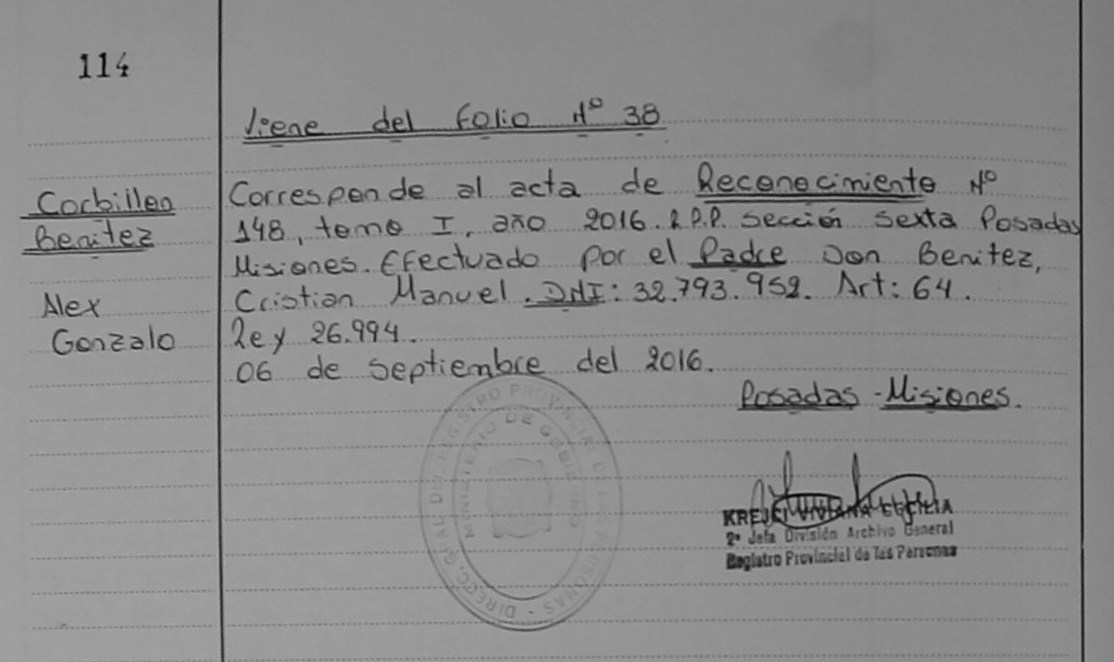 114
Viene del Folio Nº 38
Corbillon
Benitez
Alex
Gonzalo
Corresponde al acta de Reconocimiento Nº
148, tomo I, año 2016. R.P.P. Sección Sexta Posadas
Misiones. Efectuado por el Padre Don Benitez,
Cristian Manuel. DNI: 32.793.952. Art: 64.
Ley 26.994.
06 de Septiembre del 2016.
Posadas - Misiones.
DIRECC. GRAL. DEL REGISTRO PROVINCIAL DE LAS PERSONAS
MINISTERIO DE GOBIERNO
KREJCI VIVIANA
2ª Jefa División Archivo General
Registro Provincial de las Personas